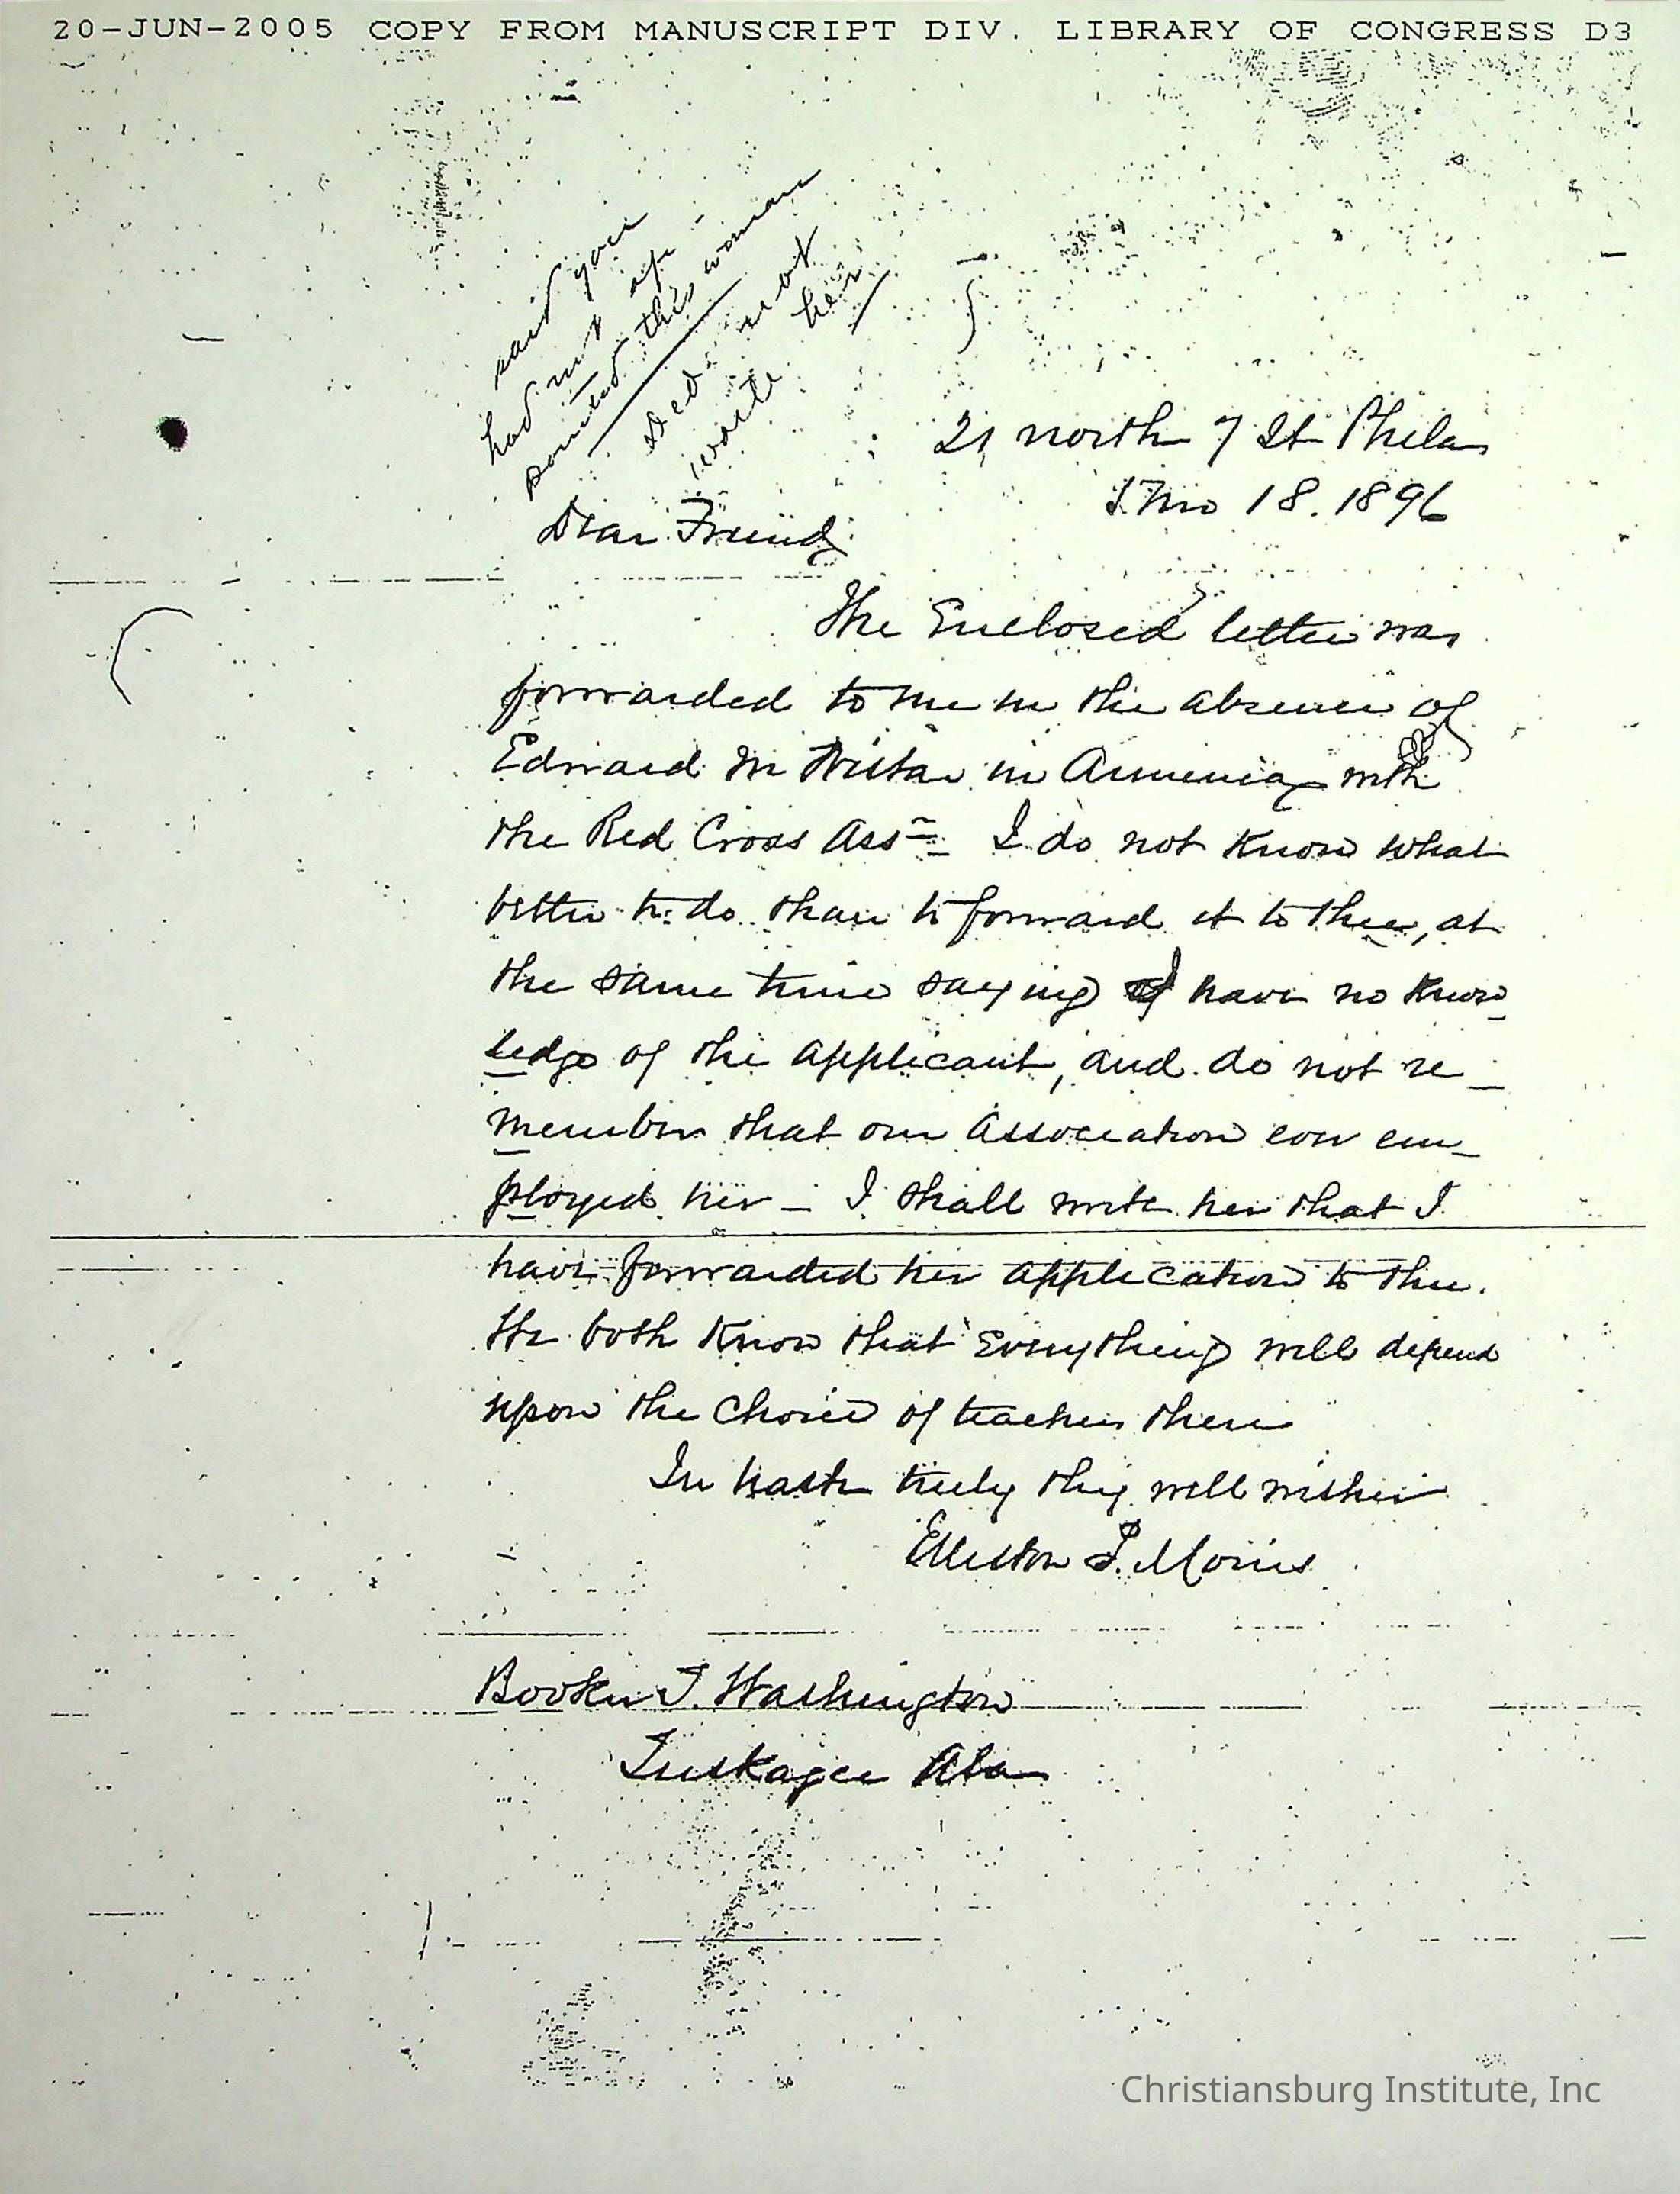 20-JUN-2005 COPY FROM MANUSCRIPT DIV. LIBRARY OF CONGRESS D3
said you
had not ap-
pointed this woman
not
write her
21 north 7 St Phila
Mo 18. 1896
Dear Friend,
The Enclosed letter was
forwarded to me in the absence of
Edward M Wistar in Armenia with
the Red Cross Assn I do not Know what
better to do than to forward it to thee, at
the same time saying I have no Know
ledge of the applicant, and do not re-
member that our association ever em-
ployed her - I shall write her that I
have forwarded her application to thee.
We both Know that Everything will depend
upon the choice of teachers there
In haste truly thy well wisher
Elliston P. Morris
Booker T. Washington
Tuskagee Ala
Christiansburg Institute, Inc